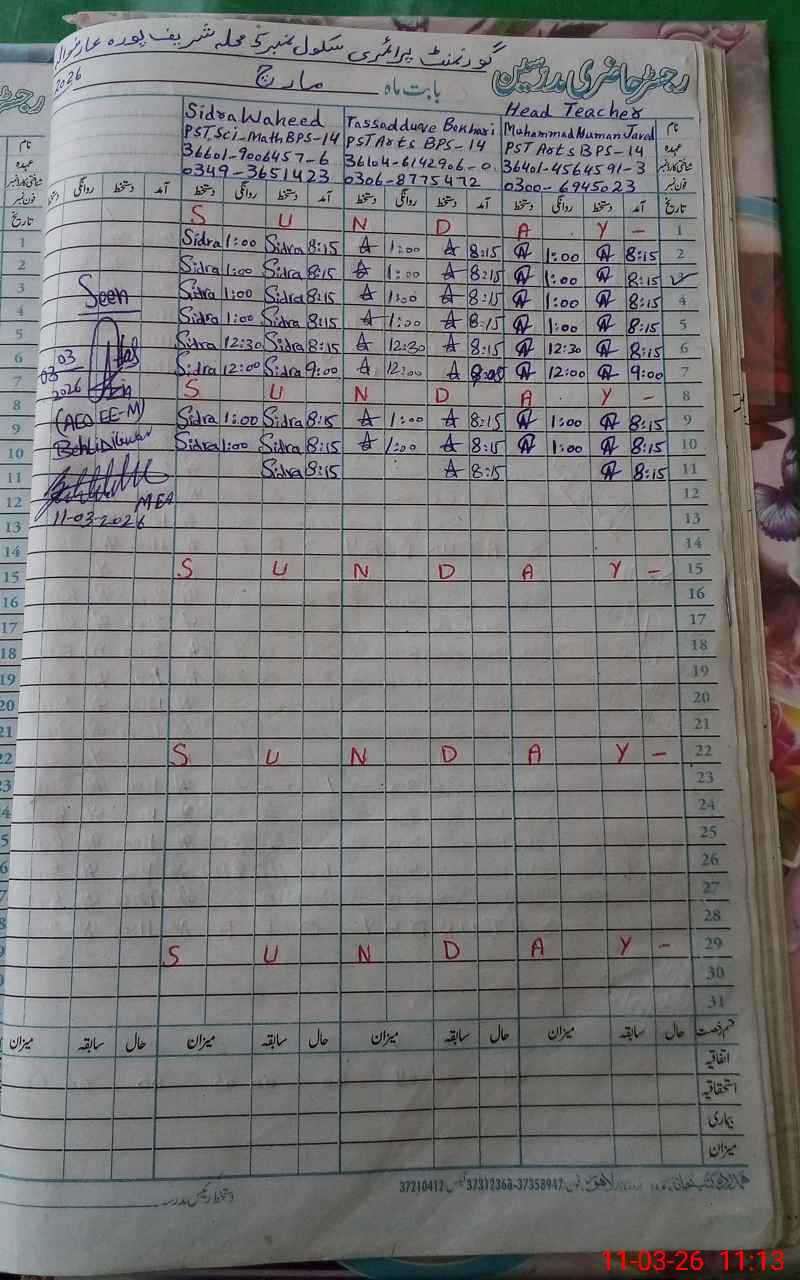 گورنمنٹ پرائمری سکول نمبر 5 محلہ شریف پورہ عارفوالہ
رجسٹر حاضری مدرسین
بابت ماہ مارچ 2026
Head Teacher
نام Muhammad Numan Javed Tassadduque Bokhari Sidra Waheed
عہدہ PST Arts BPS-14 PST Arts BPS-14 PST, Sci-Math BPS-14
شناختی کارڈ نمبر 36401-4564591-3 36104-6142906-0 36601-9006457-6
فون نمبر 0300-6945023 0306-8775472 0349-3651423
تاریخ آمد دستخط روانگی دستخط آمد دستخط روانگی دستخط آمد دستخط روانگی دستخط آمد دستخط روانگی
1 S U N D A Y -
2 Sidra 1:00 Sidra 8:15 1:00 8:15 1:00 8:15
3 Sidra 1:00 Sidra 8:15 1:00 8:15 1:00 8:15
4 Sidra 1:00 Sidra 8:15 1:00 8:15 1:00 8:15
5 Sidra 1:00 Sidra 8:15 1:00 8:15 1:00 8:15
6 Sidra 12:30 Sidra 8:15 12:30 8:15 12:30 8:15
7 Sidra 12:00 Sidra 9:00 12:00 12:00 9:00
8 S U N D A Y -
9 Sidra 1:00 Sidra 8:15 1:00 8:15 1:00 8:15
10 Sidra 1:00 Sidra 8:15 1:00 8:15 1:00 8:15
11 Sidra 8:15 8:15 8:15
12
13
14
15 S U N D A Y -
16
17
18
19
20
21
22 S U N D A Y -
23
24
25
26
27
28
29 S U N D A Y -
30
31
Seen
03
03
2026
(AEO EE-M)
MEA
11-03-2026
قسم رخصت حال سابقہ میزان حال سابقہ میزان حال سابقہ میزان حال سابقہ میزان
اتفاقیہ
استحقاقیہ
بیماری
میزان
دستخط رئیس مدرسہ
37210412 37312368-37358947
11-03-26 11:13